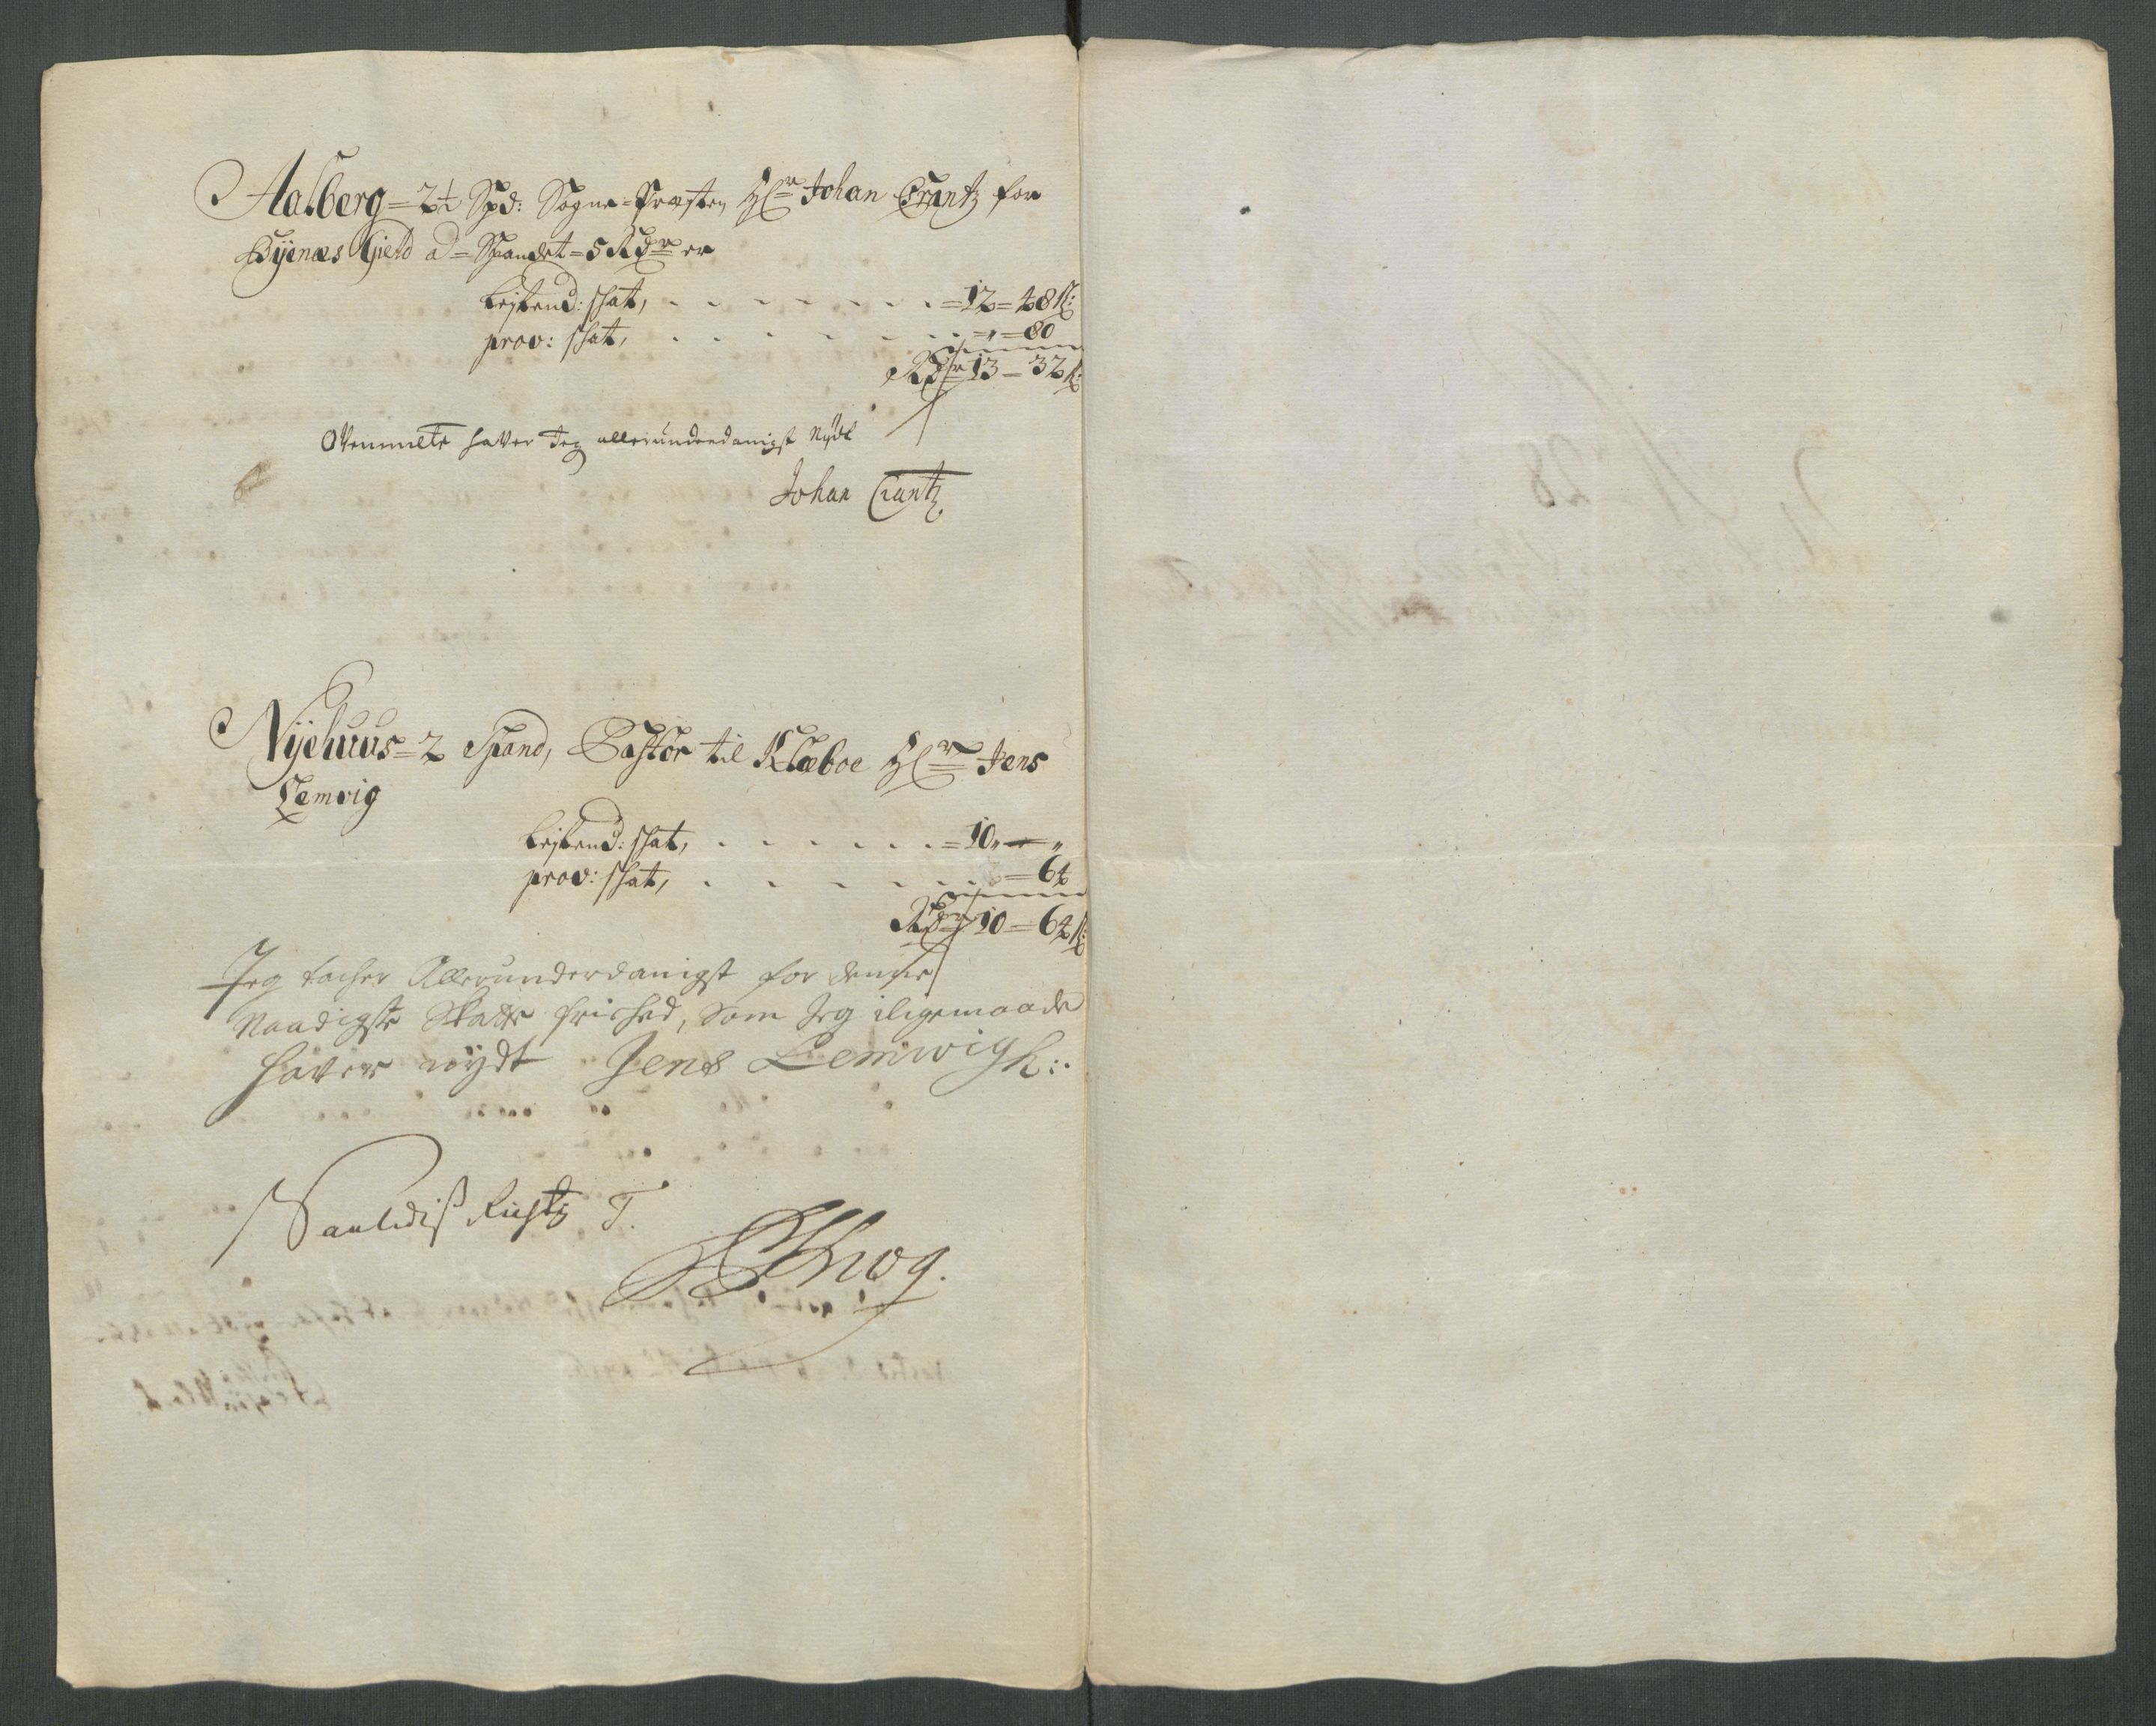 Aalberg = 2½ Spd: Sogne-Præsten Hr Johan Crantz for
Byenæs Gield ad = Spandet = 5 Rdr er
Leylend: skat, . . . . . . . = 12 = 48 s:
prov: skat, . . . . . . = „ = 80
Rdr 13 = 32 s:
Ovenmelte haver Jeg allerunderdanigst Nydt
Johan Crantz
Nyehuus = 2 Spand, Pastor til Klæboe Hr Jens
Lemvig
Leylend: skat, . . . . . . = 10 „ — „
prov: skat, . . . . . . = 64
Rdr 10 = 64 s:
Jeg tacher Allerunderdanigst for denne
Naadigste Skatte frihed, som Jeg iligemaade
haver nydt Jens Lemwigh:.
Saaledis Rigtig T.